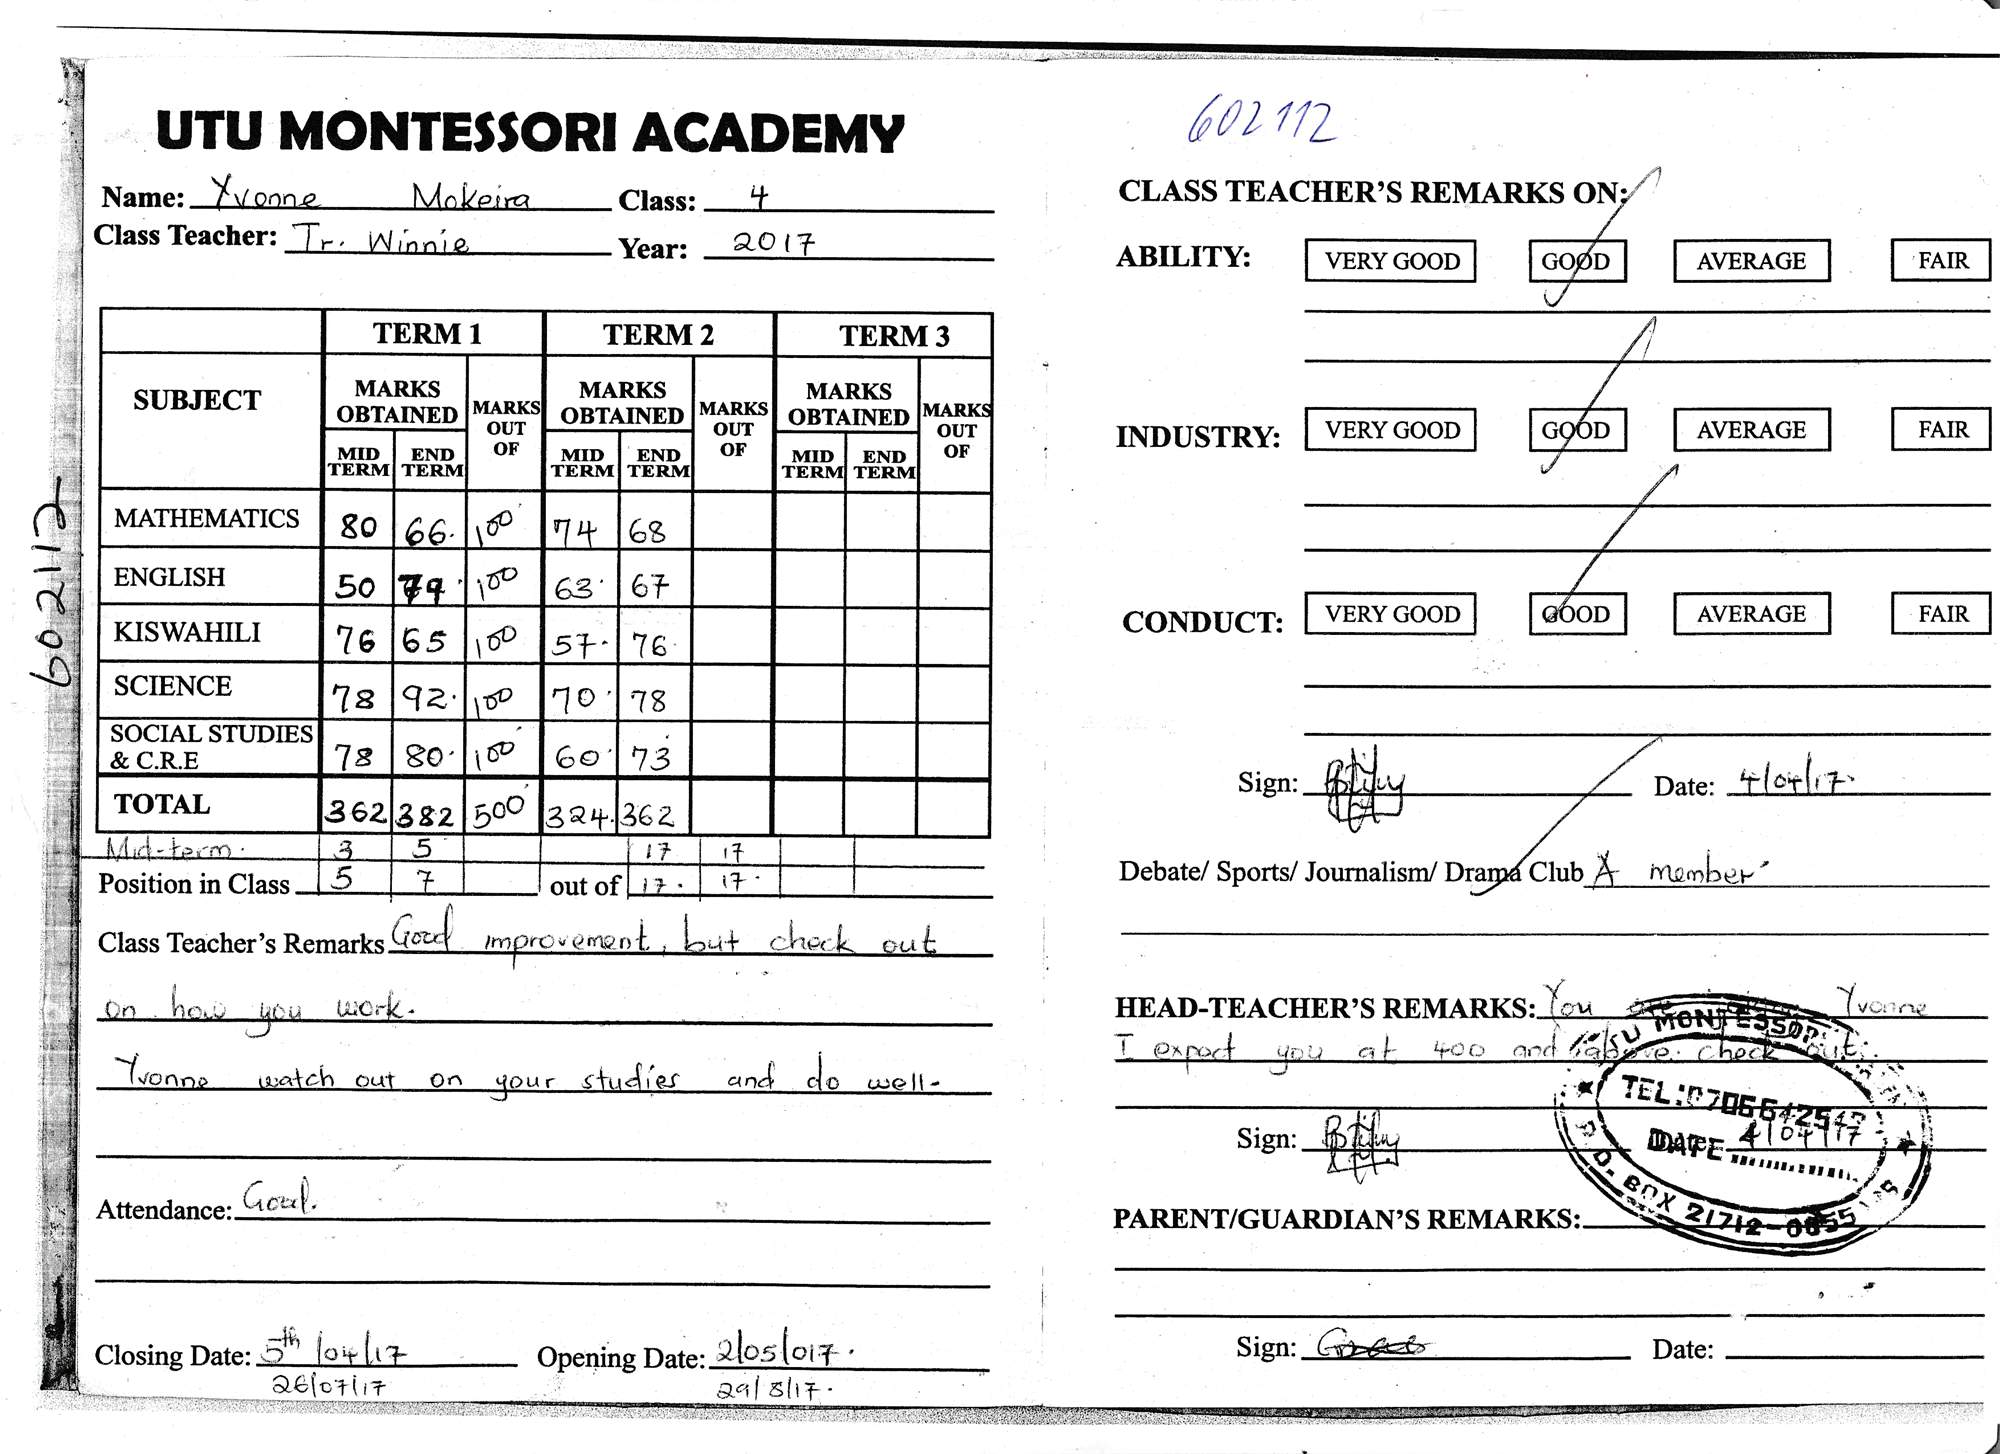 602112
UTU MONTESSORI ACADEMY
Name: Yvonne Mokeira Class: 4
Class Teacher: Tr. Winnie Year: 2017
TERM 1 TERM 2 TERM 3
SUBJECT MARKS OBTAINED MARKS OUT OF MARKS OBTAINED MARKS OUT OF MARKS OBTAINED MARKS OUT OF
MID TERM END TERM MID TERM END TERM MID TERM END TERM
MATHEMATICS 80 66. 100 74 68
ENGLISH 50 79 100 63 67
KISWAHILI 76 65 100 57. 76
SCIENCE 78 92. 100 70 78
SOCIAL STUDIES & C.R.E 78 80 100 60 73
TOTAL 362 382 500 324. 362
Mid-term. 3 5 17 17
Position in Class 5 7 out of 17. 17.
Class Teacher's Remarks Good improvement, but check out
on how you work.
Yvonne watch out on your studies and do well-
Attendance: Good.
Closing Date: 5th/04/17 Opening Date: 2/05/017.
26/07/17 29/8/17.
602112
CLASS TEACHER'S REMARKS ON:
ABILITY: VERY GOOD GOOD AVERAGE FAIR
INDUSTRY: VERY GOOD GOOD AVERAGE FAIR
CONDUCT: VERY GOOD GOOD AVERAGE FAIR
Sign: Date: 4/04/17.
Debate/ Sports/ Journalism/ Drama Club A member
HEAD-TEACHER'S REMARKS: You are Yvonne
I expect you at 400 and above. check out.
Sign: Date: 4/04/17
MONTESSORI
TEL:0706642542
DATE
P.O. BOX 21712-00
PARENT/GUARDIAN'S REMARKS:
Sign: Date: